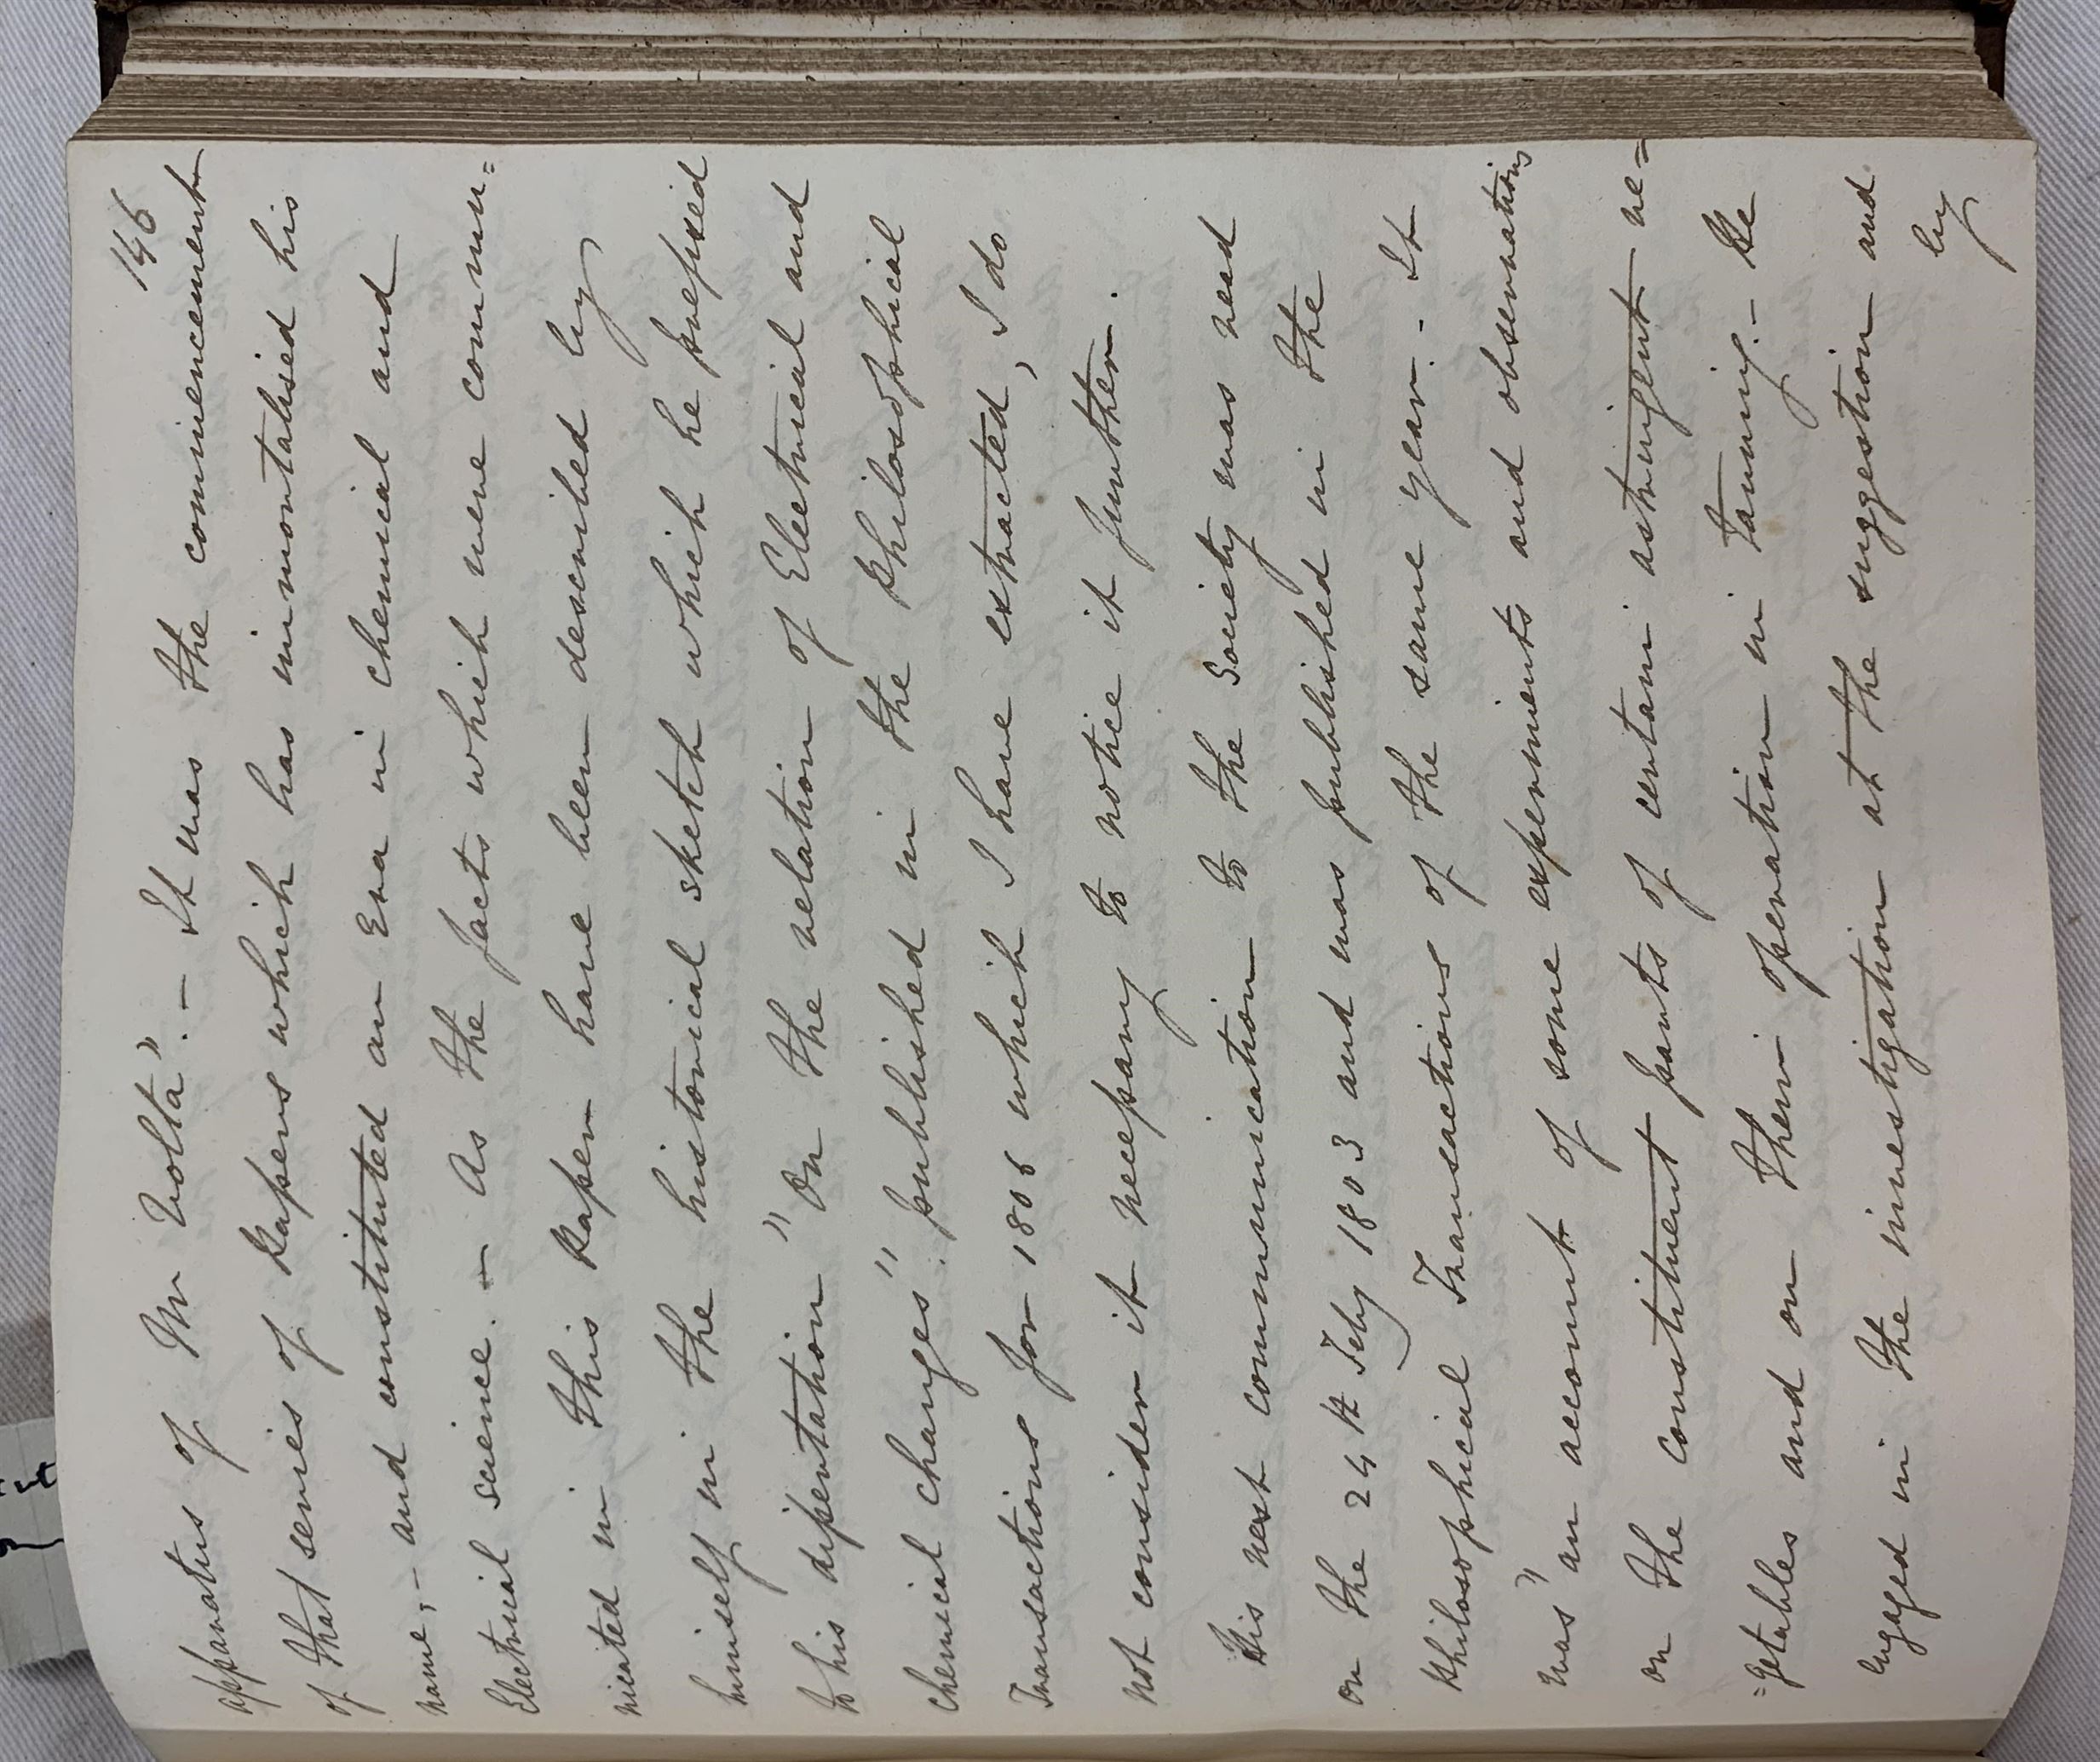 146
apparatus of Mr Volta". – It was the commencement
of that series of papers which has immortalised his
name, – and constituted an Era in chemical and
Electrical science. – As the facts which were commu=
nicated in this paper have been described by
himself in the historical sketch which he prefixed
to his dissertation "On the relation of Electrical and
Chemical changes" published in the Philosophical
Transactions for 1806 which I have extracted, I do
not consider it necessary to notice it further.
His next communication to the Society was read
on the 24th Feby 1803 and was published in the
Philosophical Transactions of the same year. – It
was "an account of some experiments and observations
on the constituent parts of certain astringent ve=
=getables and on their operation in Tanning. – He
engaged in the investigation at the suggestion and
by